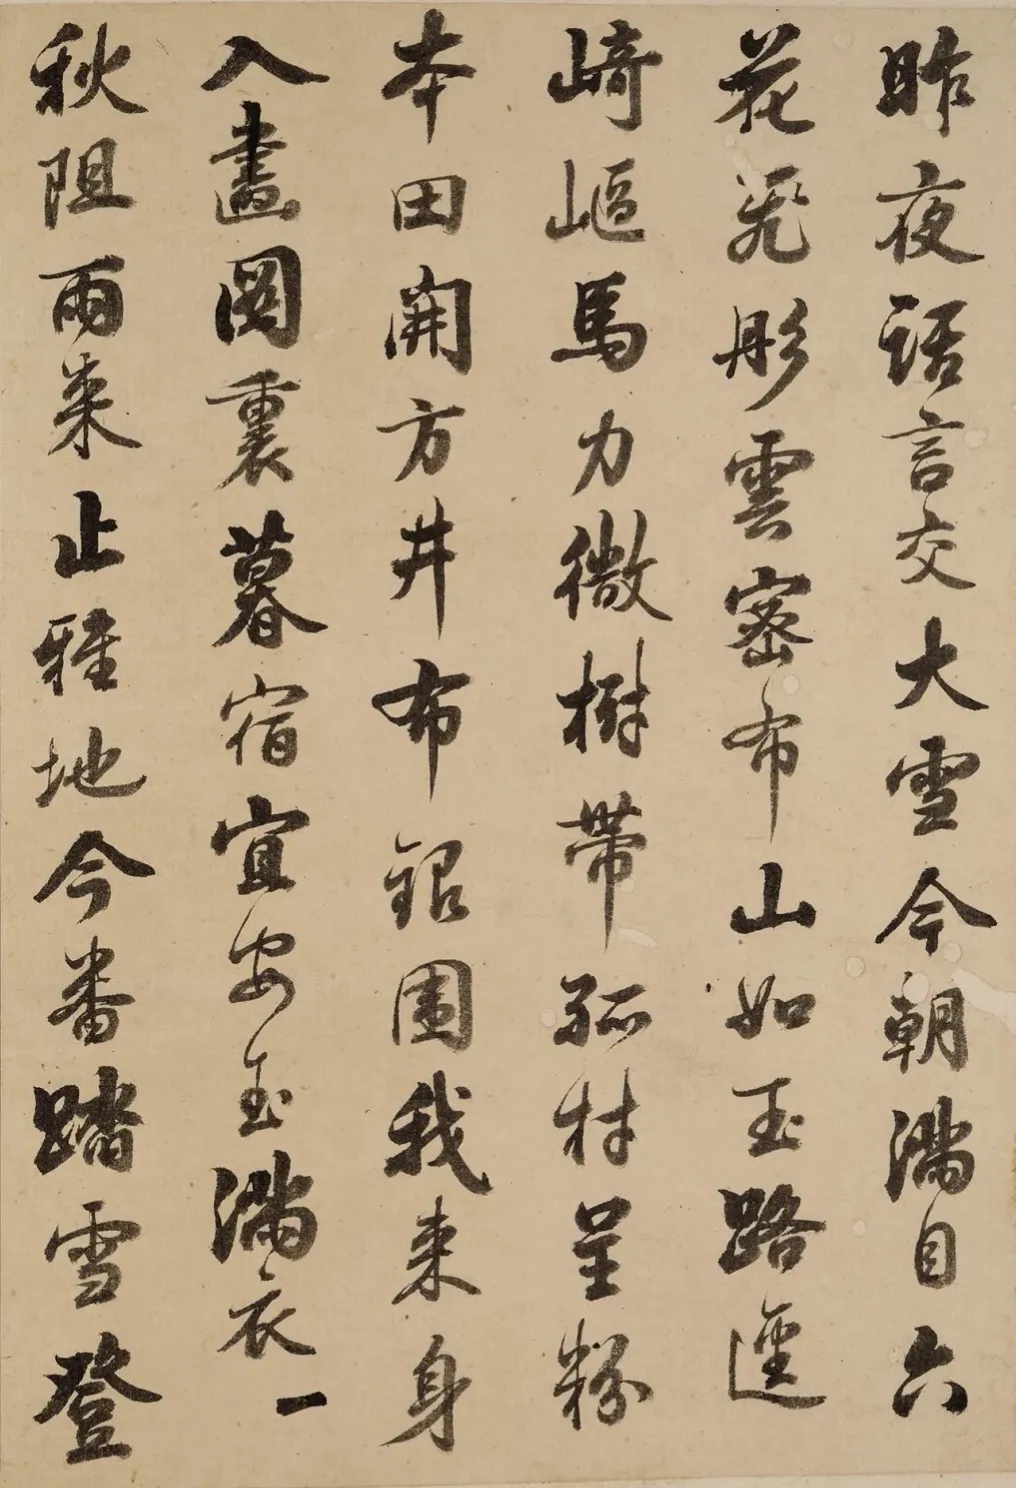 昨夜話言交大雪今朝滿目六
花飛彤雲密布山如玉路逕
崎嶇馬力微樹帶孤村呈粉
本田開方井布銀圍我來身
入畫圖裏暮宿宜安玉滿衣一
秋阻雨來止雅地今番踏雪登